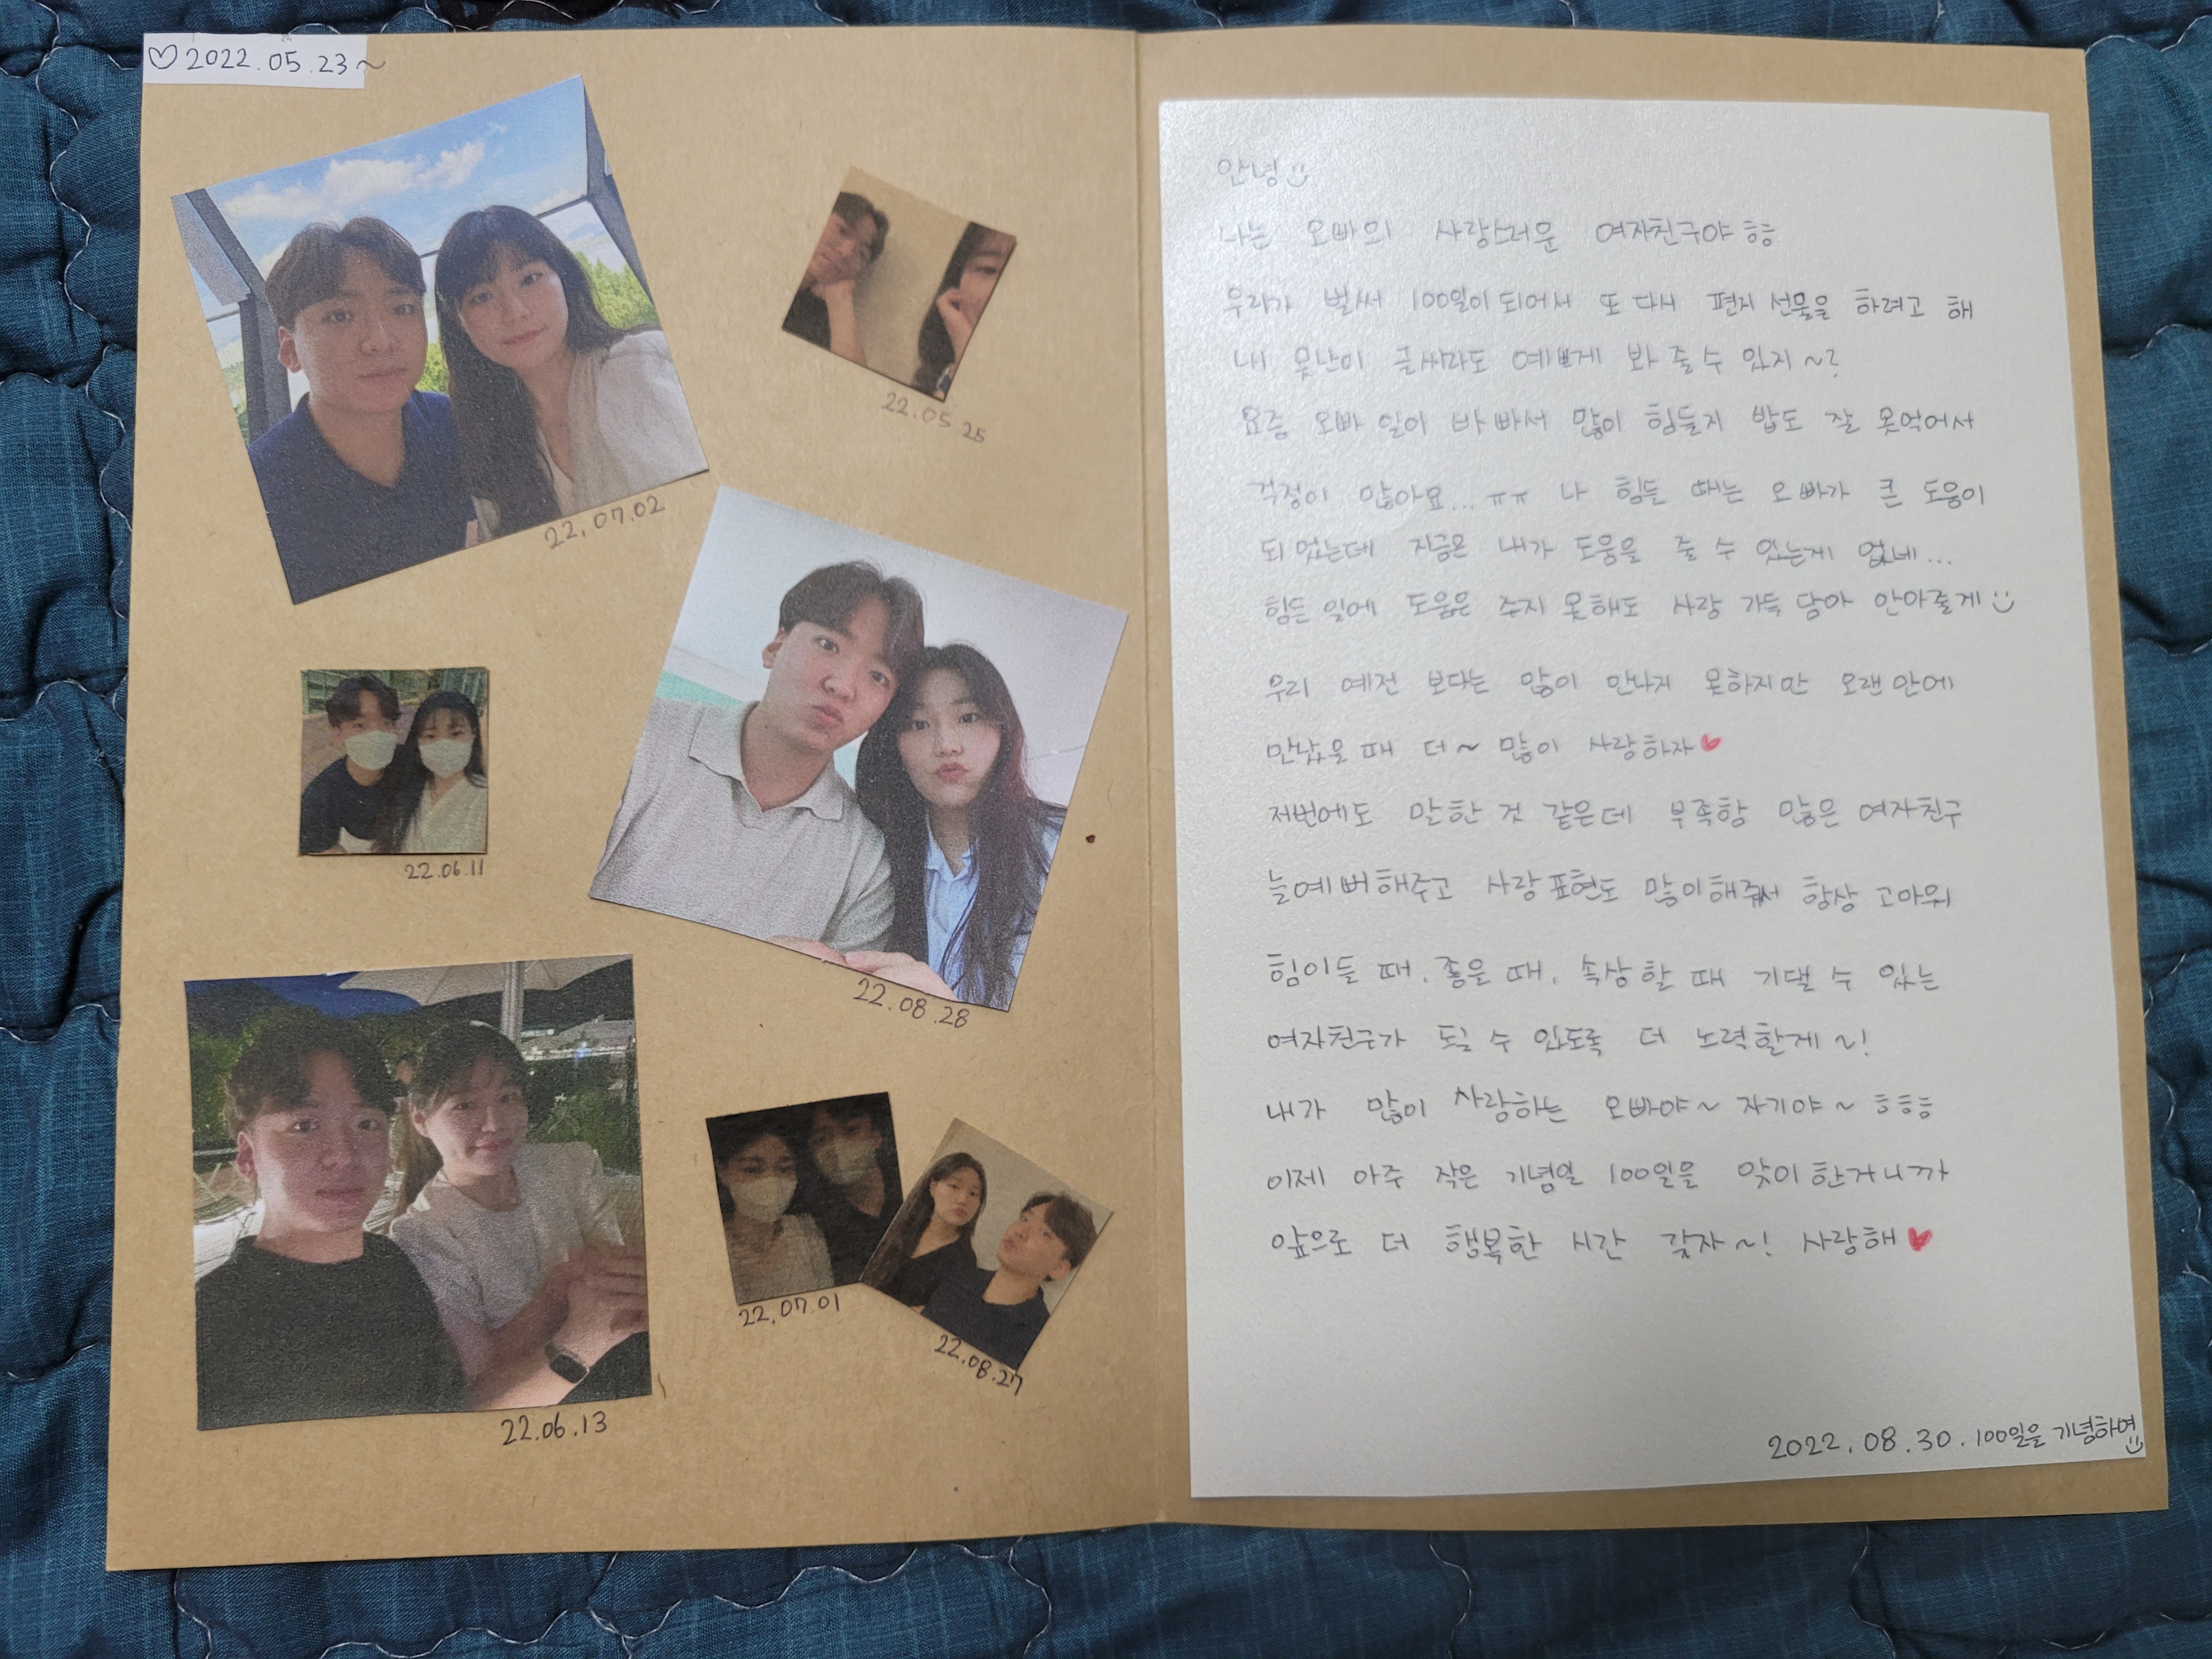 ♡2022.05.23~
22.05.25
22.07.02
22.06.11
22.08.28
22.06.13
22.07.01
22.08.27
안녕
나는 오빠의 사랑스러운 여자친구야 ㅎㅎ
우리가 벌써 100일이 되어서 또 다시 편지 선물을 하려고 해
내 못난이 글씨라도 예쁘게 봐 줄 수 있지~?
요즘 오빠 일이 바빠서 많이 힘들지 밥도 잘 못먹어서
걱정이 많아요...ㅠㅠ 나 힘들 때는 오빠가 큰 도움이
되었는데 지금은 내가 도움을 줄 수 있는게 없네...
힘든 일에 도움은 주지 못해도 사랑 가득 담아 안아줄게
우리 예전 보다는 많이 만나지 못하지만 오랜만에
만났을 때 더~ 많이 사랑하자♥
저번에도 말한 것 같은데 부족함 많은 여자친구
늘 예뻐해주고 사랑 표현도 많이 해줘서 항상 고마워
힘이들 때, 좋을 때, 속상할 때 기댈 수 있는
여자친구가 될 수 있도록 더 노력할게~!
내가 많이 사랑하는 오빠야~ 자기야~ ㅎㅎㅎ
이제 아주 작은 기념일 100일을 맞이 한거니까
앞으로 더 행복한 시간 갖자~! 사랑해♥
2022.08.30. 100일을 기념하여